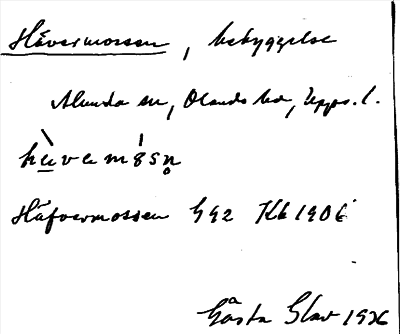 Håvermossen, bebyggelse
Alunda sn, Olands hd, Upps. l.
Håfvermossen 642 Kk 1906
Gösta Slav 1936